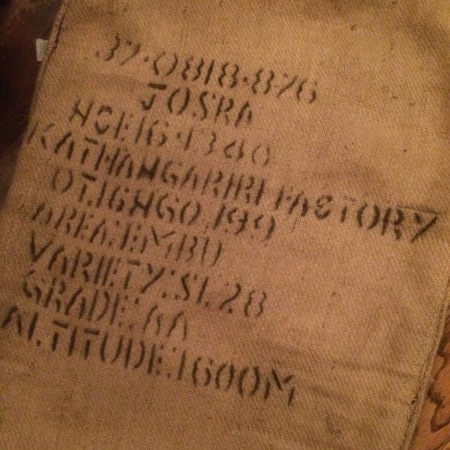 37-0818-876
JOSRA
NCE16-1340
KATHANGARIRI FACTORY
OT16NGO.199
AREA:EMBU
VARIETY:SL28
GRADE:AA
ALTITUDE:1600M